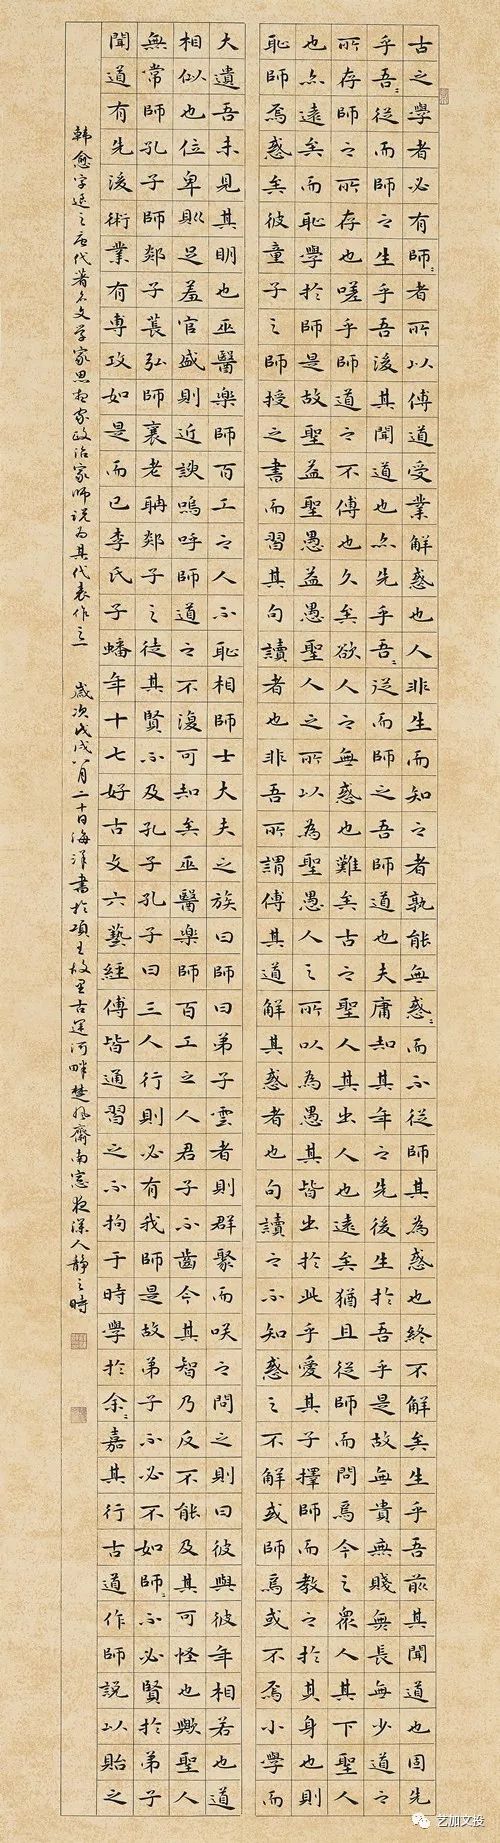 古之學者必有師〻者所以傳道受業解惑也人非生而知之者孰能無惑〻而不從師其為惑也終不解矣生乎吾前其聞道也固先
乎吾〻從而師之生乎吾後其聞道也亦先乎吾〻從而師之吾師道也夫庸知其年之先後生於吾乎是故無貴無賤無長無少道之
所存師之所存也嗟乎師道之不傳也久矣欲人之無惑也難矣古之聖人其出人也遠矣猶且從師而問焉今之眾人其下聖人
也亦遠矣而恥學於師是故聖益聖愚益愚聖人之所以為聖愚人之所以為愚其皆出於此乎愛其子擇師而教之於其身也則
恥師焉惑矣彼童子之師授之書而習其句讀者也非吾所謂傳其道解其惑者也句讀之不知惑之不解或師焉或不焉小學而
大遺吾未見其明也巫醫樂師百工之人不恥相師士大夫之族曰師曰弟子雲者則群聚而咲之問之則曰彼與彼年相若也道
相似也位卑則足羞官盛則近諛嗚呼師道之不復可知矣巫醫樂師百工之人君子不齒今其智乃反不能及其可怪也歟聖人
無常師孔子師郯子萇弘師襄老聃郯子之徒其賢不及孔子孔子曰三人行則必有我師是故弟子不必不如師〻不必賢於弟子
聞道有先後術業有專攻如是而已李氏子蟠年十七好古文六藝經傳皆通習之不拘于時學於余〻嘉其行古道作師說以貽之
韓愈字退之唐代著名文学家思想家政治家师说为其代表作之一 歲次戊戌八月二十日海洋書於項王故里古運河畔楚風齋南窗夜深人靜之時
艺加文投